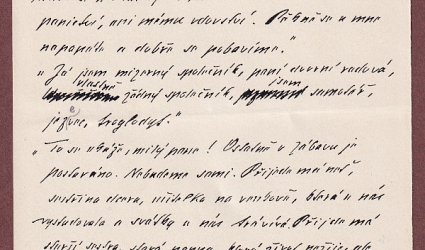 panictví, ani mému vdovství. Pěkně se u mne
napapáte a dobře se pobavíme."
„Já jsem mizerný společník, paní dvorní radová,
vlastně žádný společník, jsem samotář,
troglodyt."
„To se ukáže, milý pane! Ostatně o zábavu je
postaráno. Nebudeme sami. Přijede má neť,
sestřina dcera, učitelka na venkově, která u nás
vystudovala a svátky u nás tráví. Přijede má
starší sestra, stará panna, která